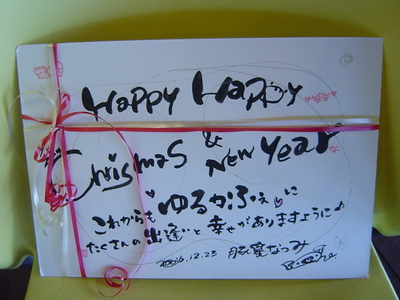 Happy Happy
Chrismas & New Year
これからも ゆるかふぇ に
たくさんの出逢いと幸せがありますように♪
2006.12.23 なつみ